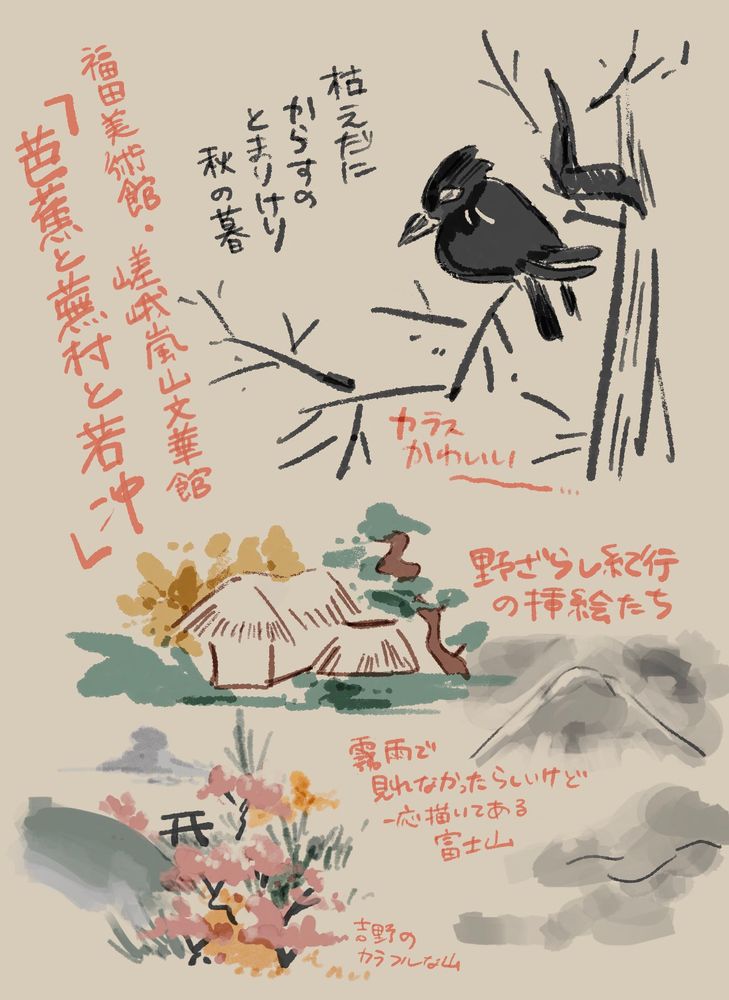 福田美術館・嵯峨嵐山文華館
「芭蕉と蕪村と若冲」
枯えだに
からすの
とまりけり
秋の暮
カラス
かわいい
…
野ざらし紀行
の挿絵たち
霧雨で
見れなかったらしいけど
一応描いてある
富士山
吉野の
カラフルな山